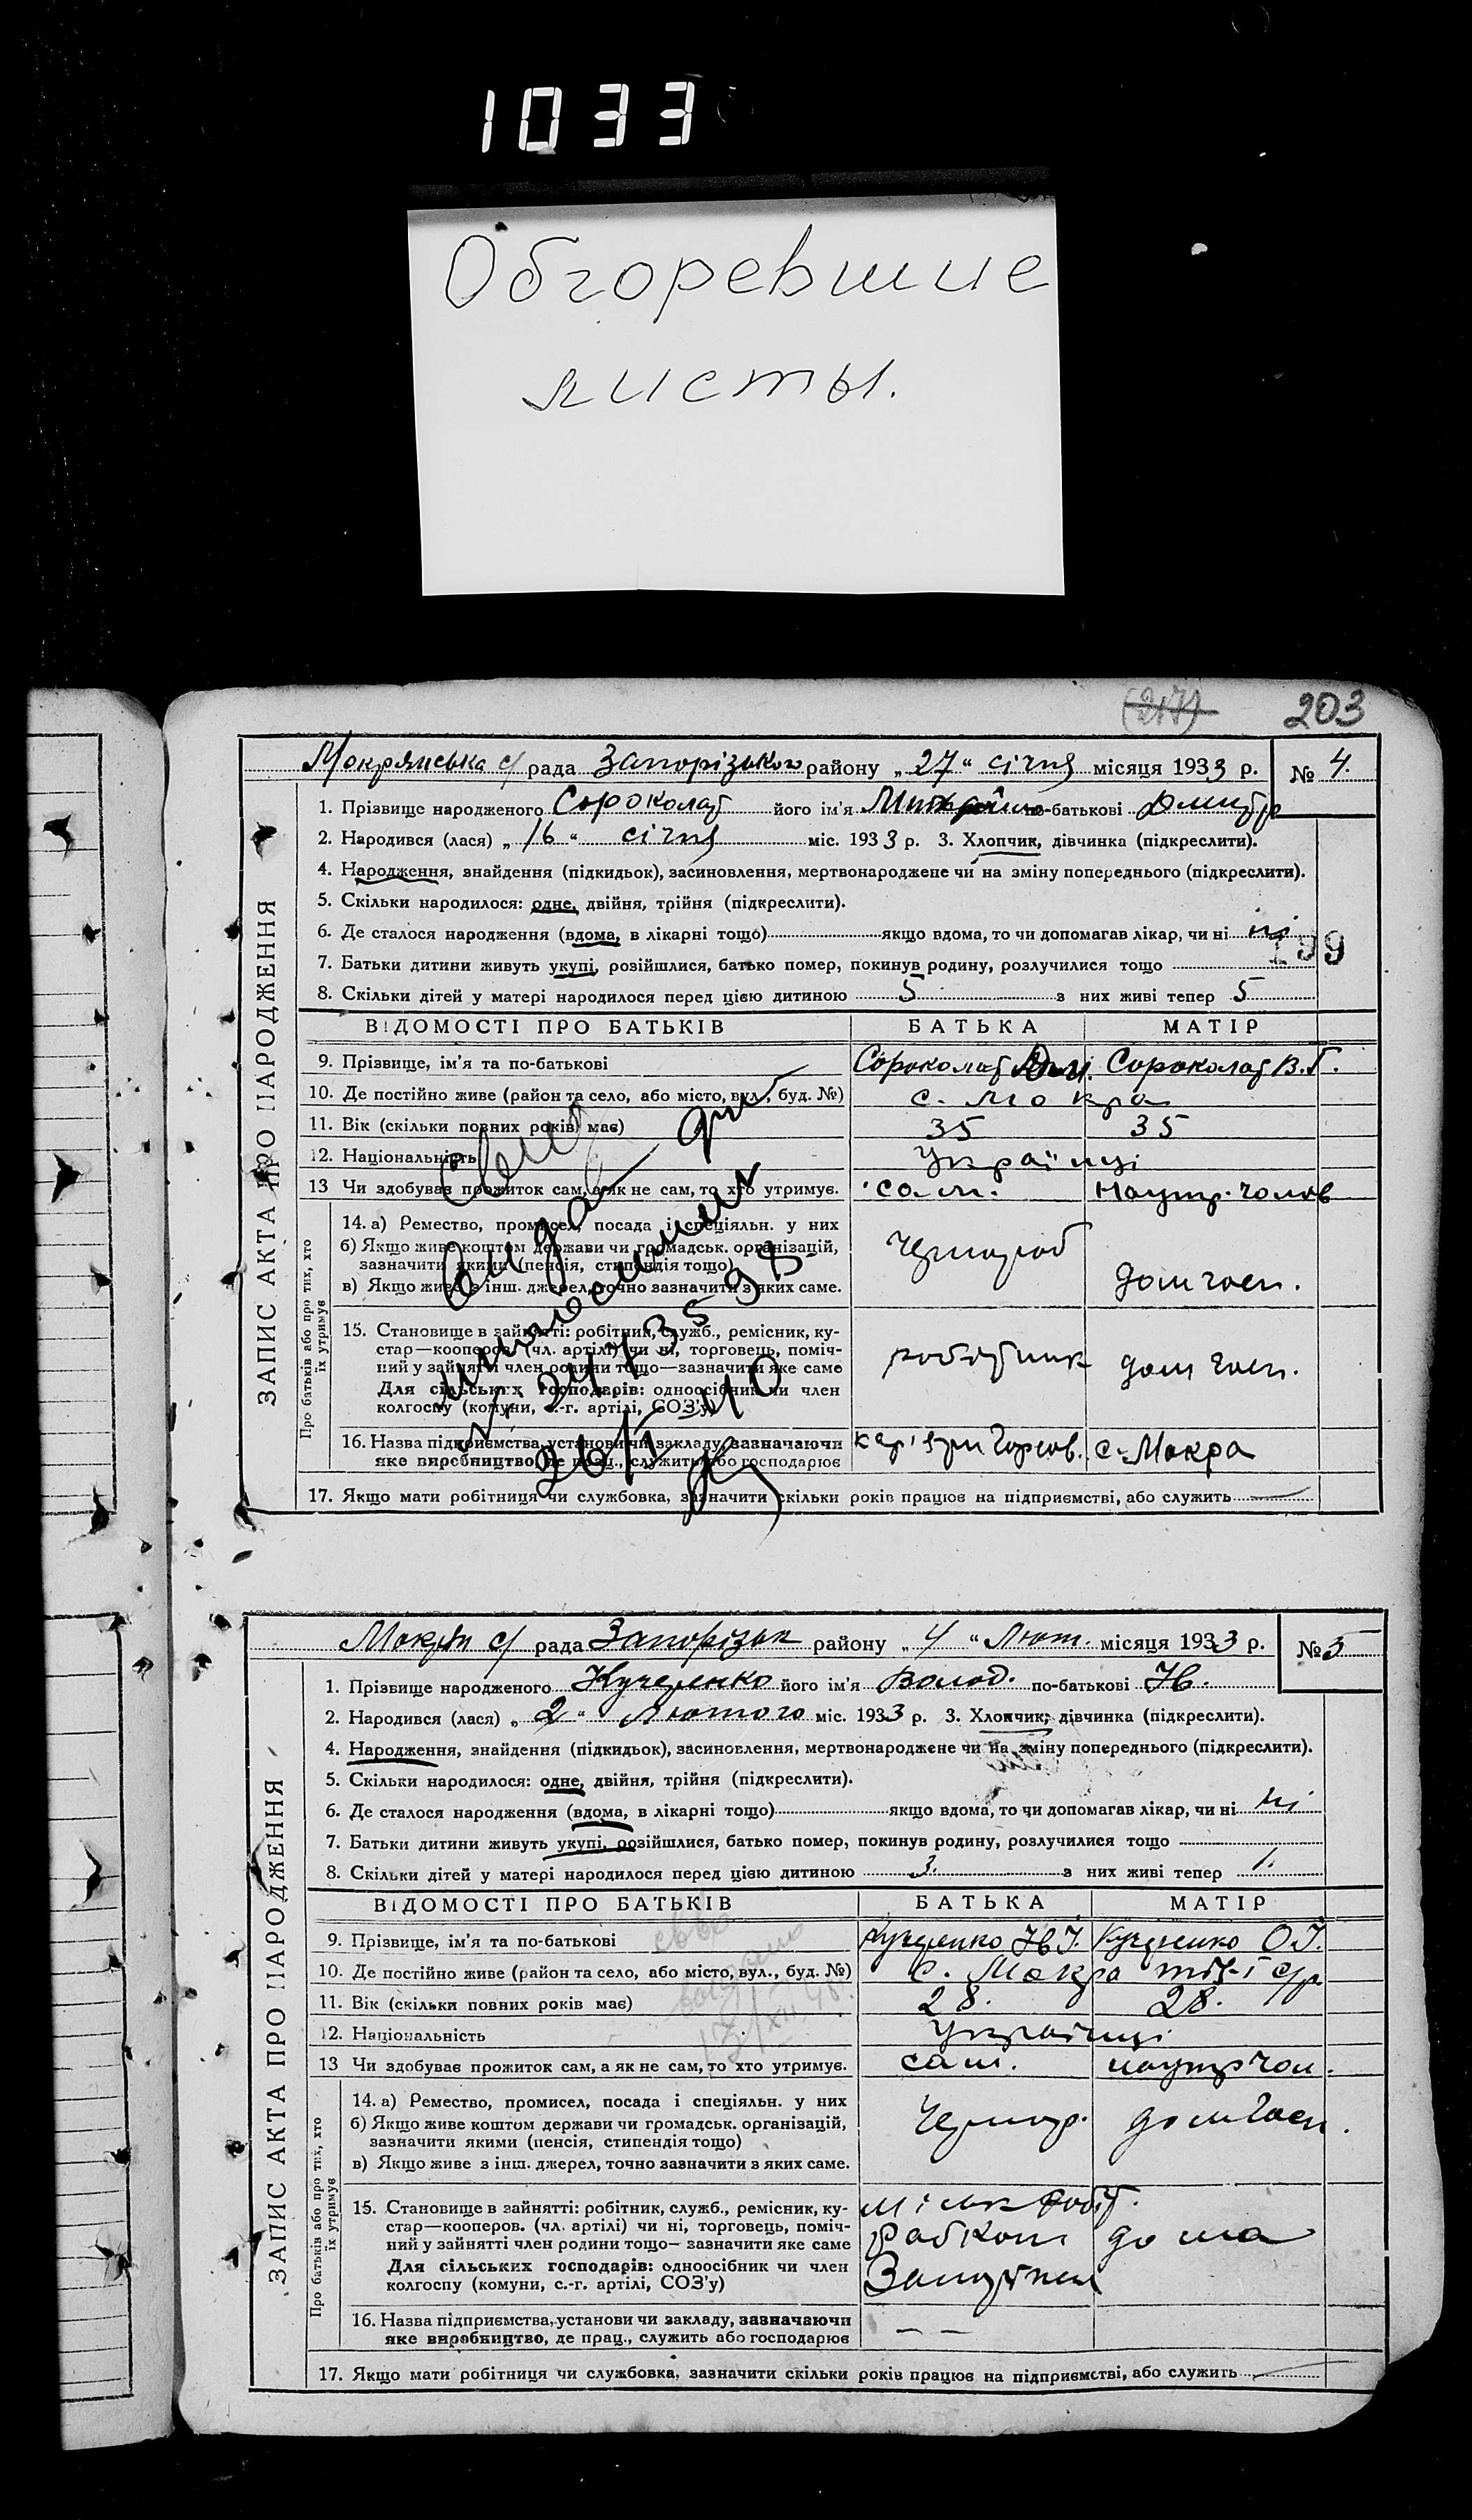 1033
Обгоревшие
листы.
(217) 203
Мокрянська с/ рада Запорізького району „27“ січня місяця 1933 р. № 4.
ЗАПИС АКТА ПРО НАРОДЖЕННЯ
1. Прізвище народженого Сороколат його ім'я по-батькові Дмитр
2. Народився (лася) „16“ січня міс. 1933 р. 3. Хлопчик, дівчинка (підкреслити).
4. Народження, знайдення (підкидьок), засиновлення, мертвонароджене чи на зміну попереднього (підкреслити).
5. Скільки народилося: одне, двійня, трійня (підкреслити).
6. Де сталося народження (вдома, в лікарні тощо) якщо вдома, то чи допомагав лікар, чи ні ні
199
7. Батьки дитини живуть укупі, розійшлися, батько помер, покинув родину, розлучилися тощо
8. Скільки дітей у матері народилося перед цією дитиною 5 з них живі тепер 5
ВІДОМОСТІ ПРО БАТЬКІВ БАТЬКА МАТІР
9. Прізвище, ім'я та по-батькові Сороколат Сороколат В.Г.
10. Де постійно живе (район та село, або місто, вул., буд. №) с. Мокра
11. Вік (скільки повних років має) 35 35
12. Національність Українці
13 Чи здобуває прожиток сам, а як не сам, то хто утримує. сам. На утр. чолов
Про батьків або про тих, хто їх утримує
14. а) Ремество, промисел, посада і спеціяльн. у них
б) Якщо живе коштом держави чи громадськ. організацій,
зазначити якими (пенсія, стипендія тощо)
в) Якщо живе з інш. джерел, точно зазначити з яких саме.
Чернороб дом госп.
15. Становище в зайнятті: робітник, служб., ремісник, ку-
стар—кооперов. (чл. артілі) чи ні, торговець, поміч-
ний у зайнятті член родини тощо—зазначити яке саме
Для сільських господарів: одноосібник чи член
колгоспу (комуни, с.-г. артілі, СОЗ'у)
робітник дом госп.
16. Назва підприємства, установи чи закладу, зазначаючи
яке виробництво, де прац., служить або господарює
с. Мокра
17. Якщо мати робітниця чи службовка, зазначити скільки років працює на підприємстві, або служить
26/I 40
Мокрян с/ рада Запорізьк району „4“ Лют. місяця 1933 р. № 5
ЗАПИС АКТА ПРО НАРОДЖЕННЯ
1. Прізвище народженого Кучеренко його ім'я Волод. по-батькові Ів.
2. Народився (лася) „2“ Лютого міс. 1933 р. 3. Хлопчик, дівчинка (підкреслити).
4. Народження, знайдення (підкидьок), засиновлення, мертвонароджене чи на зміну попереднього (підкреслити).
5. Скільки народилося: одне, двійня, трійня (підкреслити).
6. Де сталося народження (вдома, в лікарні тощо) якщо вдома, то чи допомагав лікар, чи ні ні
7. Батьки дитини живуть укупі, розійшлися, батько помер, покинув родину, розлучилися тощо
8. Скільки дітей у матері народилося перед цією дитиною 3. з них живі тепер 1.
ВІДОМОСТІ ПРО БАТЬКІВ БАТЬКА МАТІР
9. Прізвище, ім'я та по-батькові Кучеренко Ів І. Кучеренко О.І.
10. Де постійно живе (район та село, або місто, вул., буд. №) с. Мокра с/р.
11. Вік (скільки повних років має) 28. 28.
12. Національність Українці
13 Чи здобуває прожиток сам, а як не сам, то хто утримує. сам. на утр чол.
Про батьків або про тих, хто їх утримує
14. а) Ремество, промисел, посада і спеціяльн. у них
б) Якщо живе коштом держави чи громадськ. організацій,
зазначити якими (пенсія, стипендія тощо)
в) Якщо живе з інш. джерел, точно зазначити з яких саме.
Чернор. дом госп.
15. Становище в зайнятті: робітник, служб., ремісник, ку-
стар—кооперов. (чл. артілі) чи ні, торговець, поміч-
ний у зайнятті член родини тощо—зазначити яке саме
Для сільських господарів: одноосібник чи член
колгоспу (комуни, с.-г. артілі, СОЗ'у)
дома
16. Назва підприємства, установи чи закладу, зазначаючи
яке виробництво, де прац., служить або господарює
17. Якщо мати робітниця чи службовка, зазначити скільки років працює на підприємстві, або служить